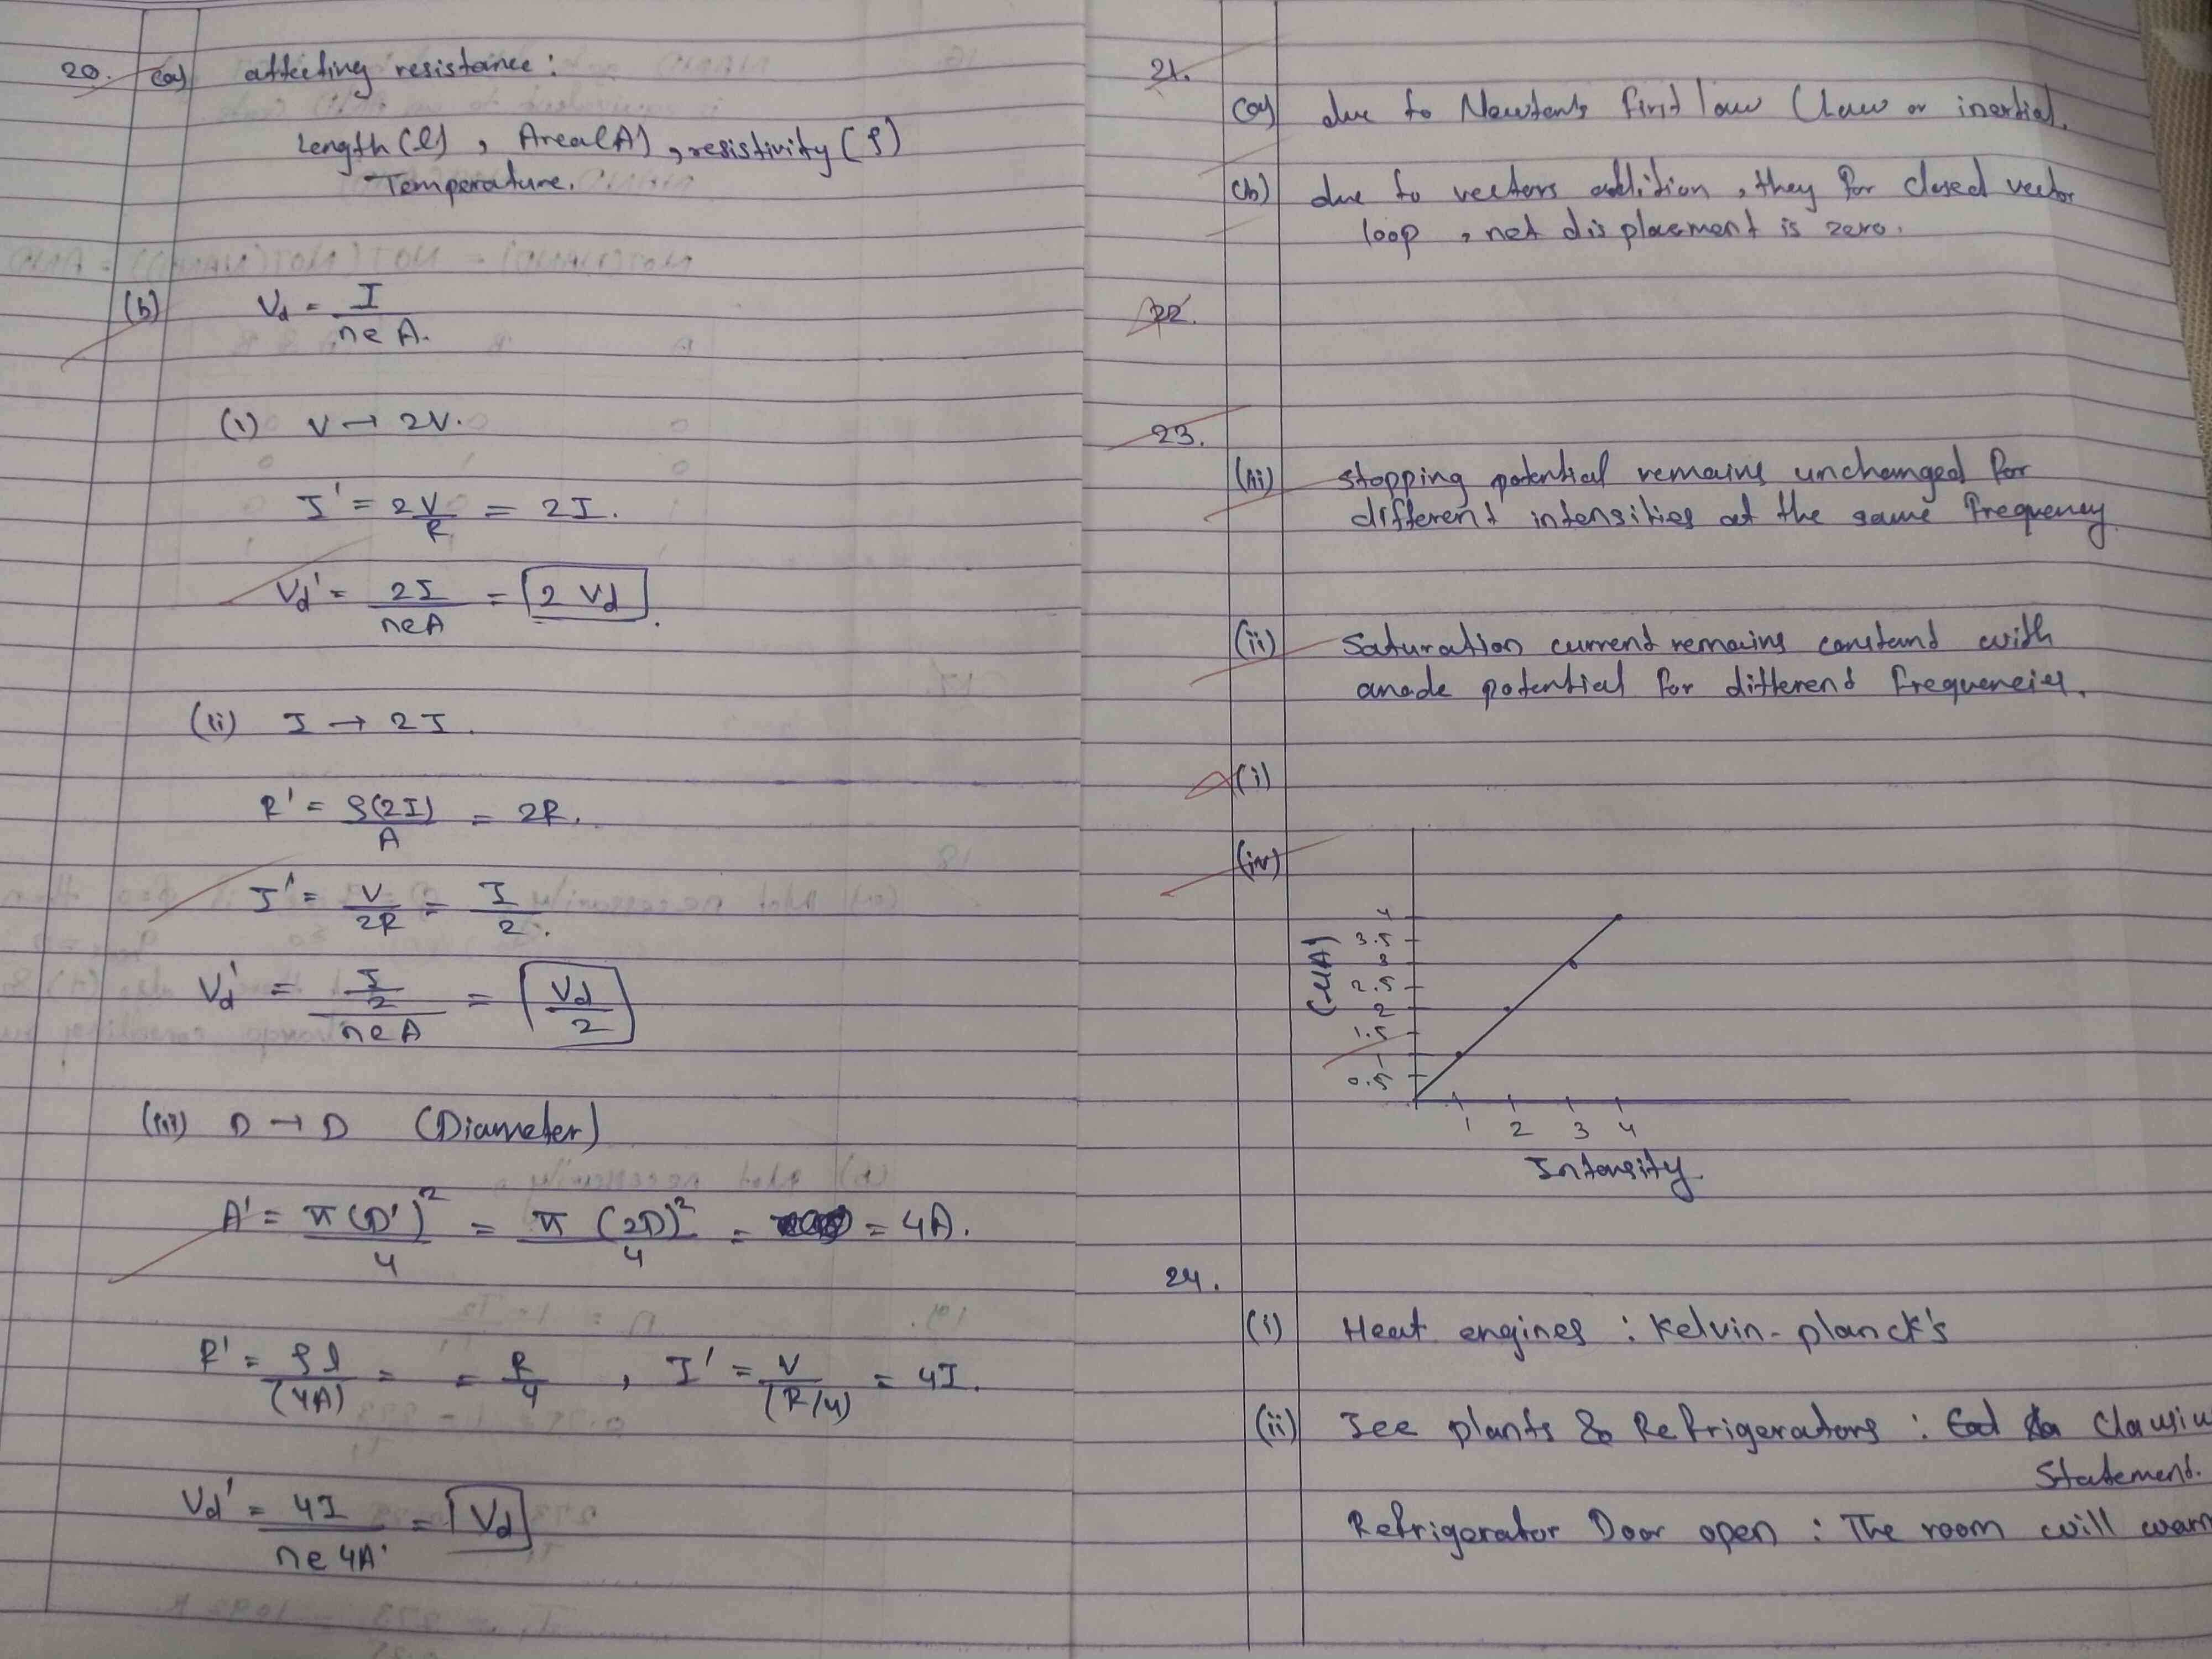 20. (a) affecting resistance:
Length (l), Area(A), resistivity (ρ)
Temperature.
(b) Vd = I / neA.
(i) V → 2V.
I' = 2V/R = 2I.
Vd' = 2I / neA = 2 Vd.
(ii) I → 2I.
R' = ρ(2I) / A = 2R.
I' = V/2R = I/2.
Vd' = I/2 / neA = Vd/2
(iii) D → D (Diameter)
A' = π(D')² / 4 = π(2D)² / 4 = = 4A.
R' = ρl / (4A) = = R/4, I' = V / (R/4) = 4I.
Vd' = 4I / ne4A' = Vd
21.
(a) due to Newton's first law (law or inertia).
(b) due to vectors addition, they for closed vector
loop, net displacment is zero.
22.
23.
(iii) stopping potential remains unchanged for
different intensities at the same frequency.
(ii) Saturation current remains constand with
anode potential for different frequencies.
(i)
(iv)
4
3.5
3
2.5
2
1.5
1
0.5
(μA)
1 2 3 4
Intensity
24.
(i) Heat engines : Kelvin-planck's
(ii) Ice plants & Refrigerators : Clausiu
Statement.
Refrigerator Door open : The room will warm